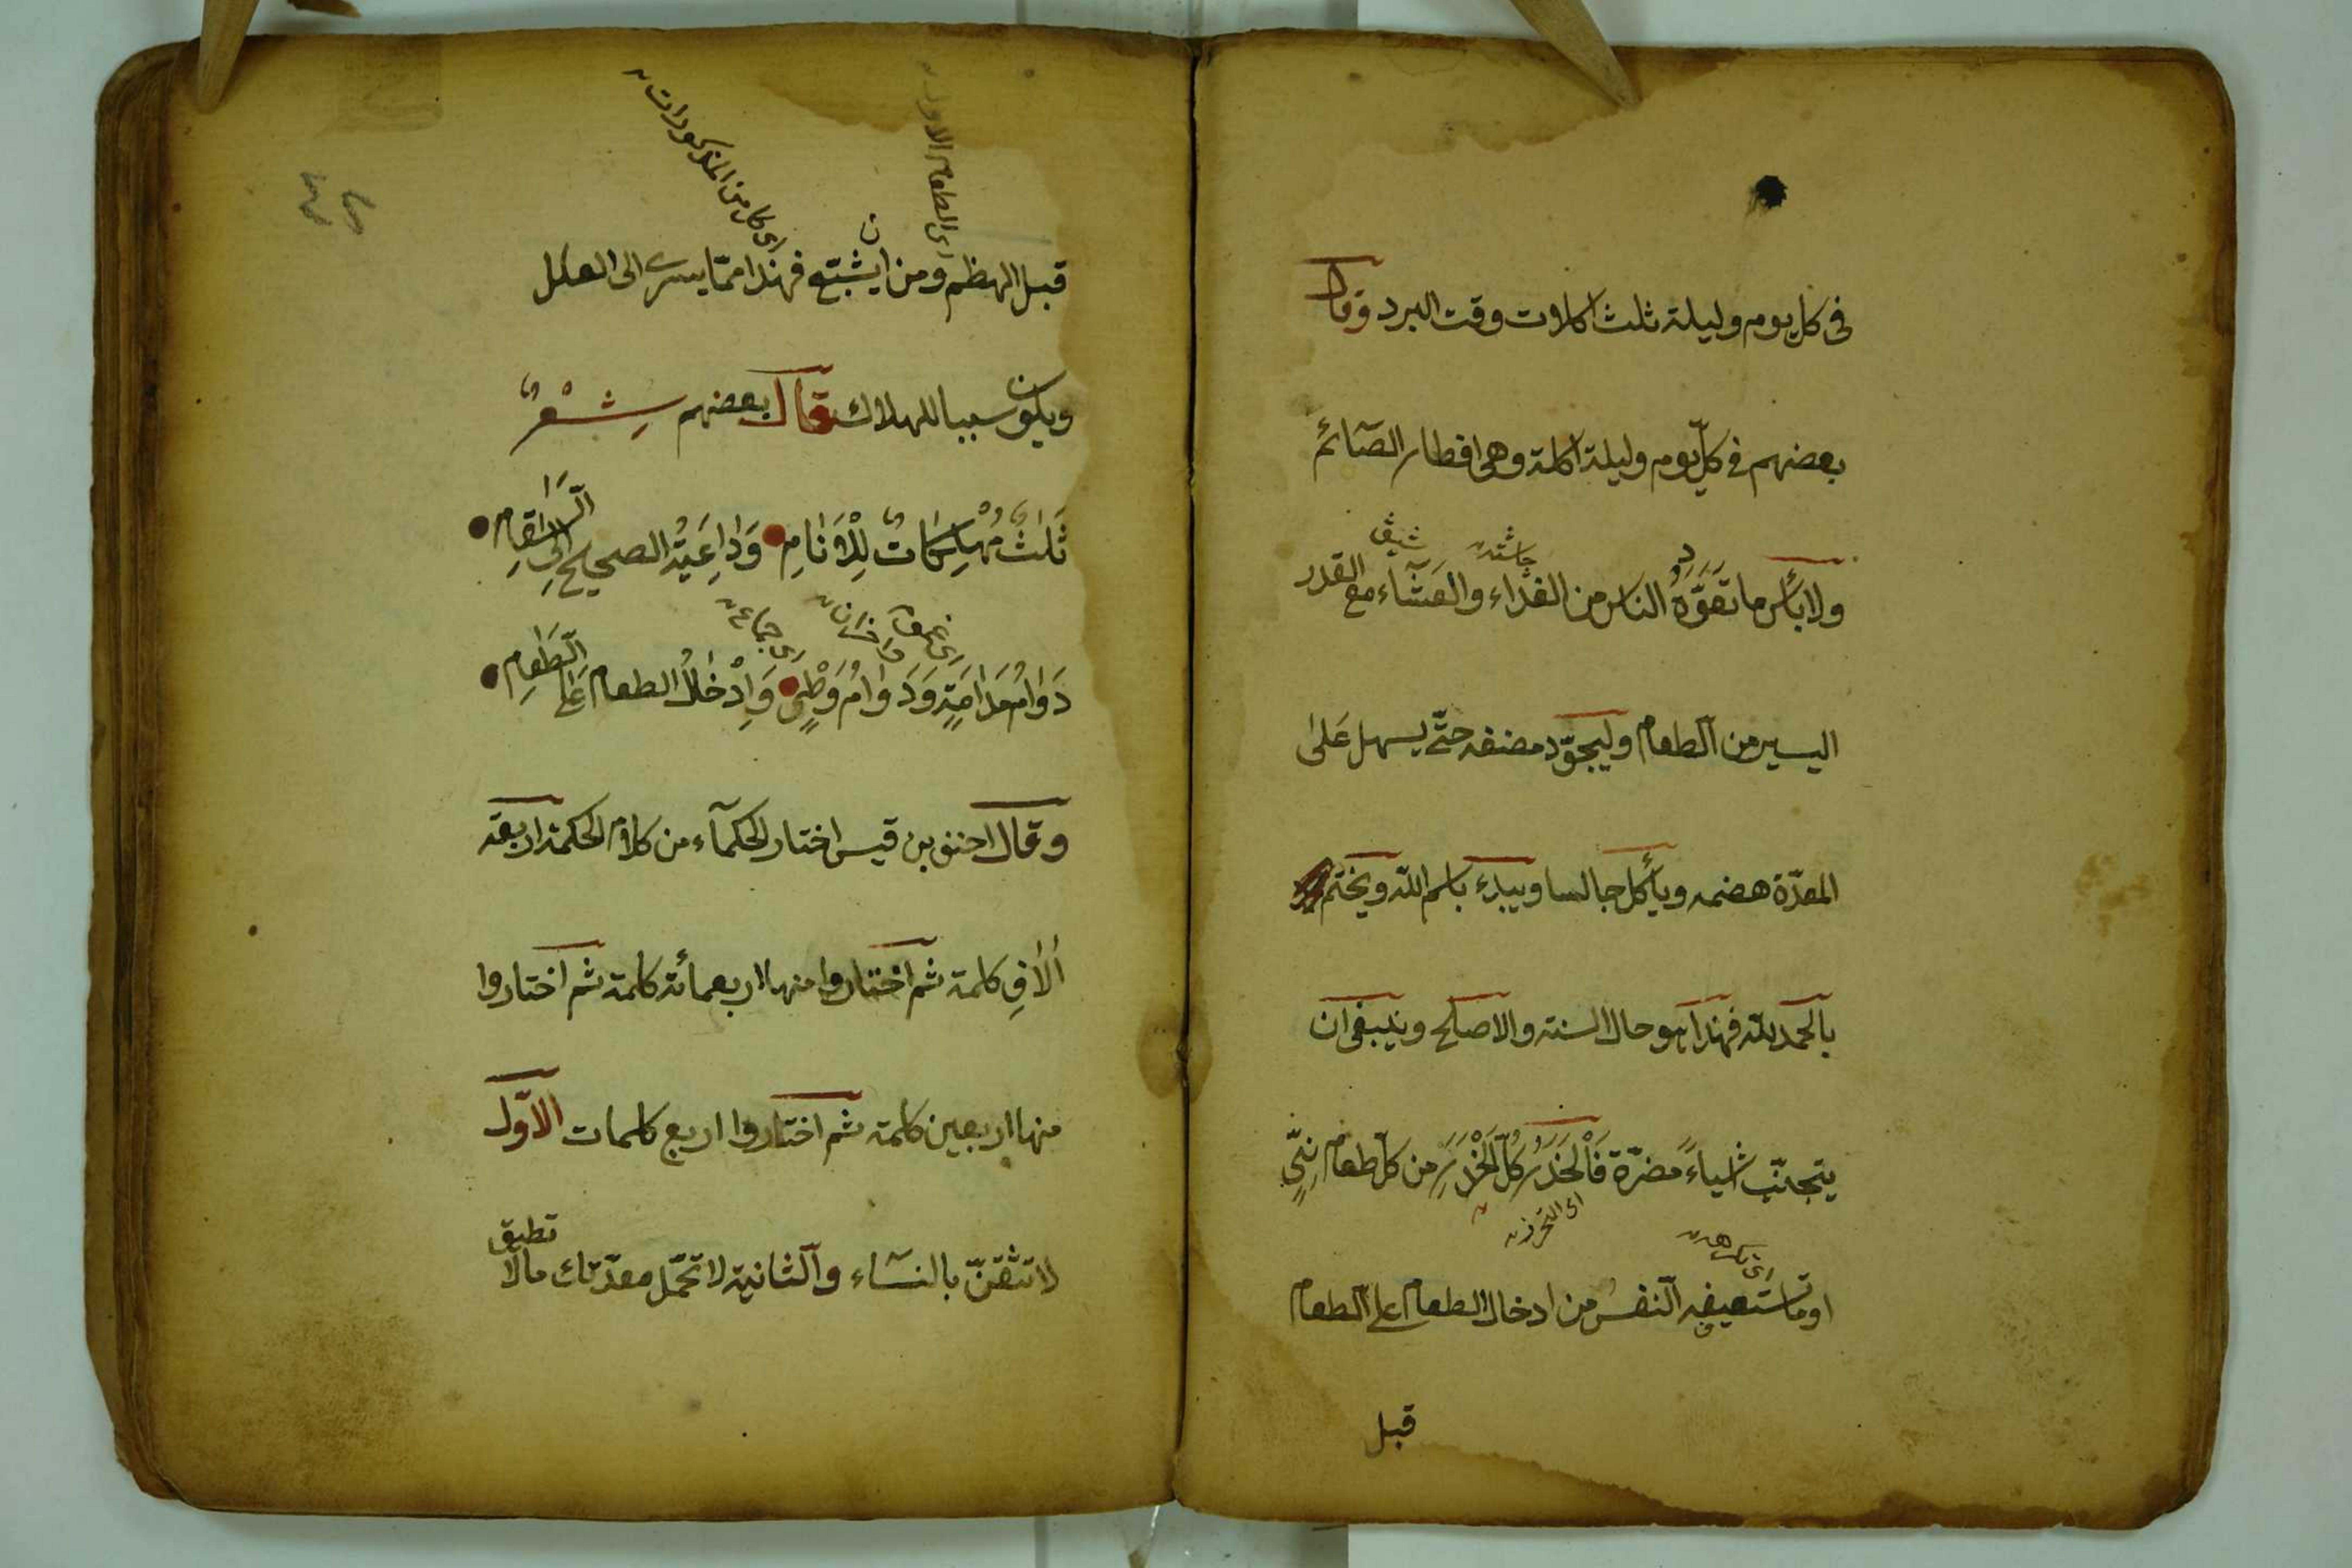 فى كل يوم وليلة ثلث اكلات وقت البرد وقال
بعضهم فى كلّ يوم وليلة اكلة وهى افطار الصّائم
شيڤ
چاشته
ولا بأس ما تعوّد الناس من الغداء والعشآء مع القدر
اليسير من الطعام وليجوّد مضغه حتّى يسهل عَلىٰ
المعدّة هضمه ويأكل جالسا ويبدء باسم اللّه ويختم
بالحمد للّه فهذا هو حال السنة والاصلح وينبغى ان
يتجنّب اشياءً مضرّة فَالْحَذَرُ كُلُّ الْحَذَرِ من كلّ طعام نِيٍّ
اى التحرز
اى تكرهه
او ما تستعيفه النفس من ادخال الطعام على الطعام
قبل
٤٢
اى الطعام الاول
اى كل من المذكورات
قبل الهظم ومن ان يشبع فهذا ممّا يسرى الى العلل
ويكون سببا للهلاك قال بعضهم شِعْرٌ
ثَلٰثٌ مُهْلِكَاتٌ لِلْاَنَامِ وَدَاعِيَةُ الصحيح اِلى السَّقَامِ
اى خمر
اى جماع
دَوَامُ مُدَامَةٍ وَدَوَامُ وَطْىٍ وَاِدْخَالُ الطعام عَلَى الطَّعَامِ
وقال احنف بن قيس اختار الحكمآء من كلام الحكمة اربعة
اٰلٰافِ كلمة ثم اختاروا منها اربعمائة كلمة ثم اختاروا
منها اربعين كلمة ثم اختاروا اربع كلمات الاوّل
لا تثقنّ بالنسآء والثانية لا تحمّل معدّتك مالا تطيق